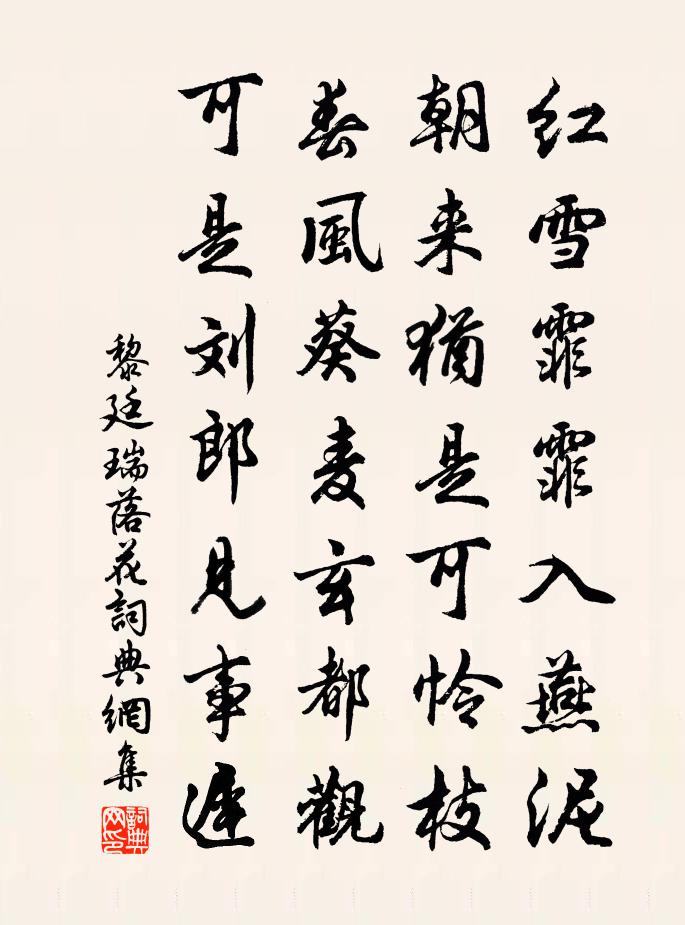 红雪霏霏入燕泥
朝来犹是可怜枝
春風葵麦玄都觀
可是刘郎見事遲
黎廷瑞落花詞典網集
詞典網印